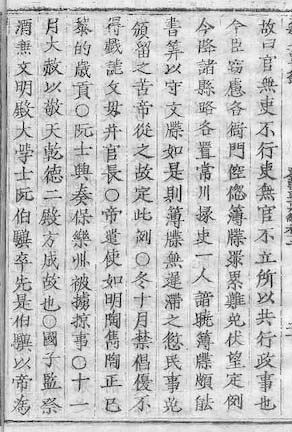 故曰官無吏不行吏無官不立所以共行政事也
今臣竊慮各衙門倥偬簿牒叢累難免伏望定例
今降諸縣路各置常川掾吏一人諳曉簿牒頗能
書算以守文牒如是則簿牒無遲滯之愆民事免
留之苦帝從之故定此例○冬十月禁倡優不
得戲謔父母并官長○帝遣使如明陶儁陶正已
黎的歲貢○阮士興奏保樂州被擄掠事○十一
月大赦以敬天乾德二殿方成故也○國子監祭
酒兼文明殿大學士阮伯驥卒先是伯驥以帝爲